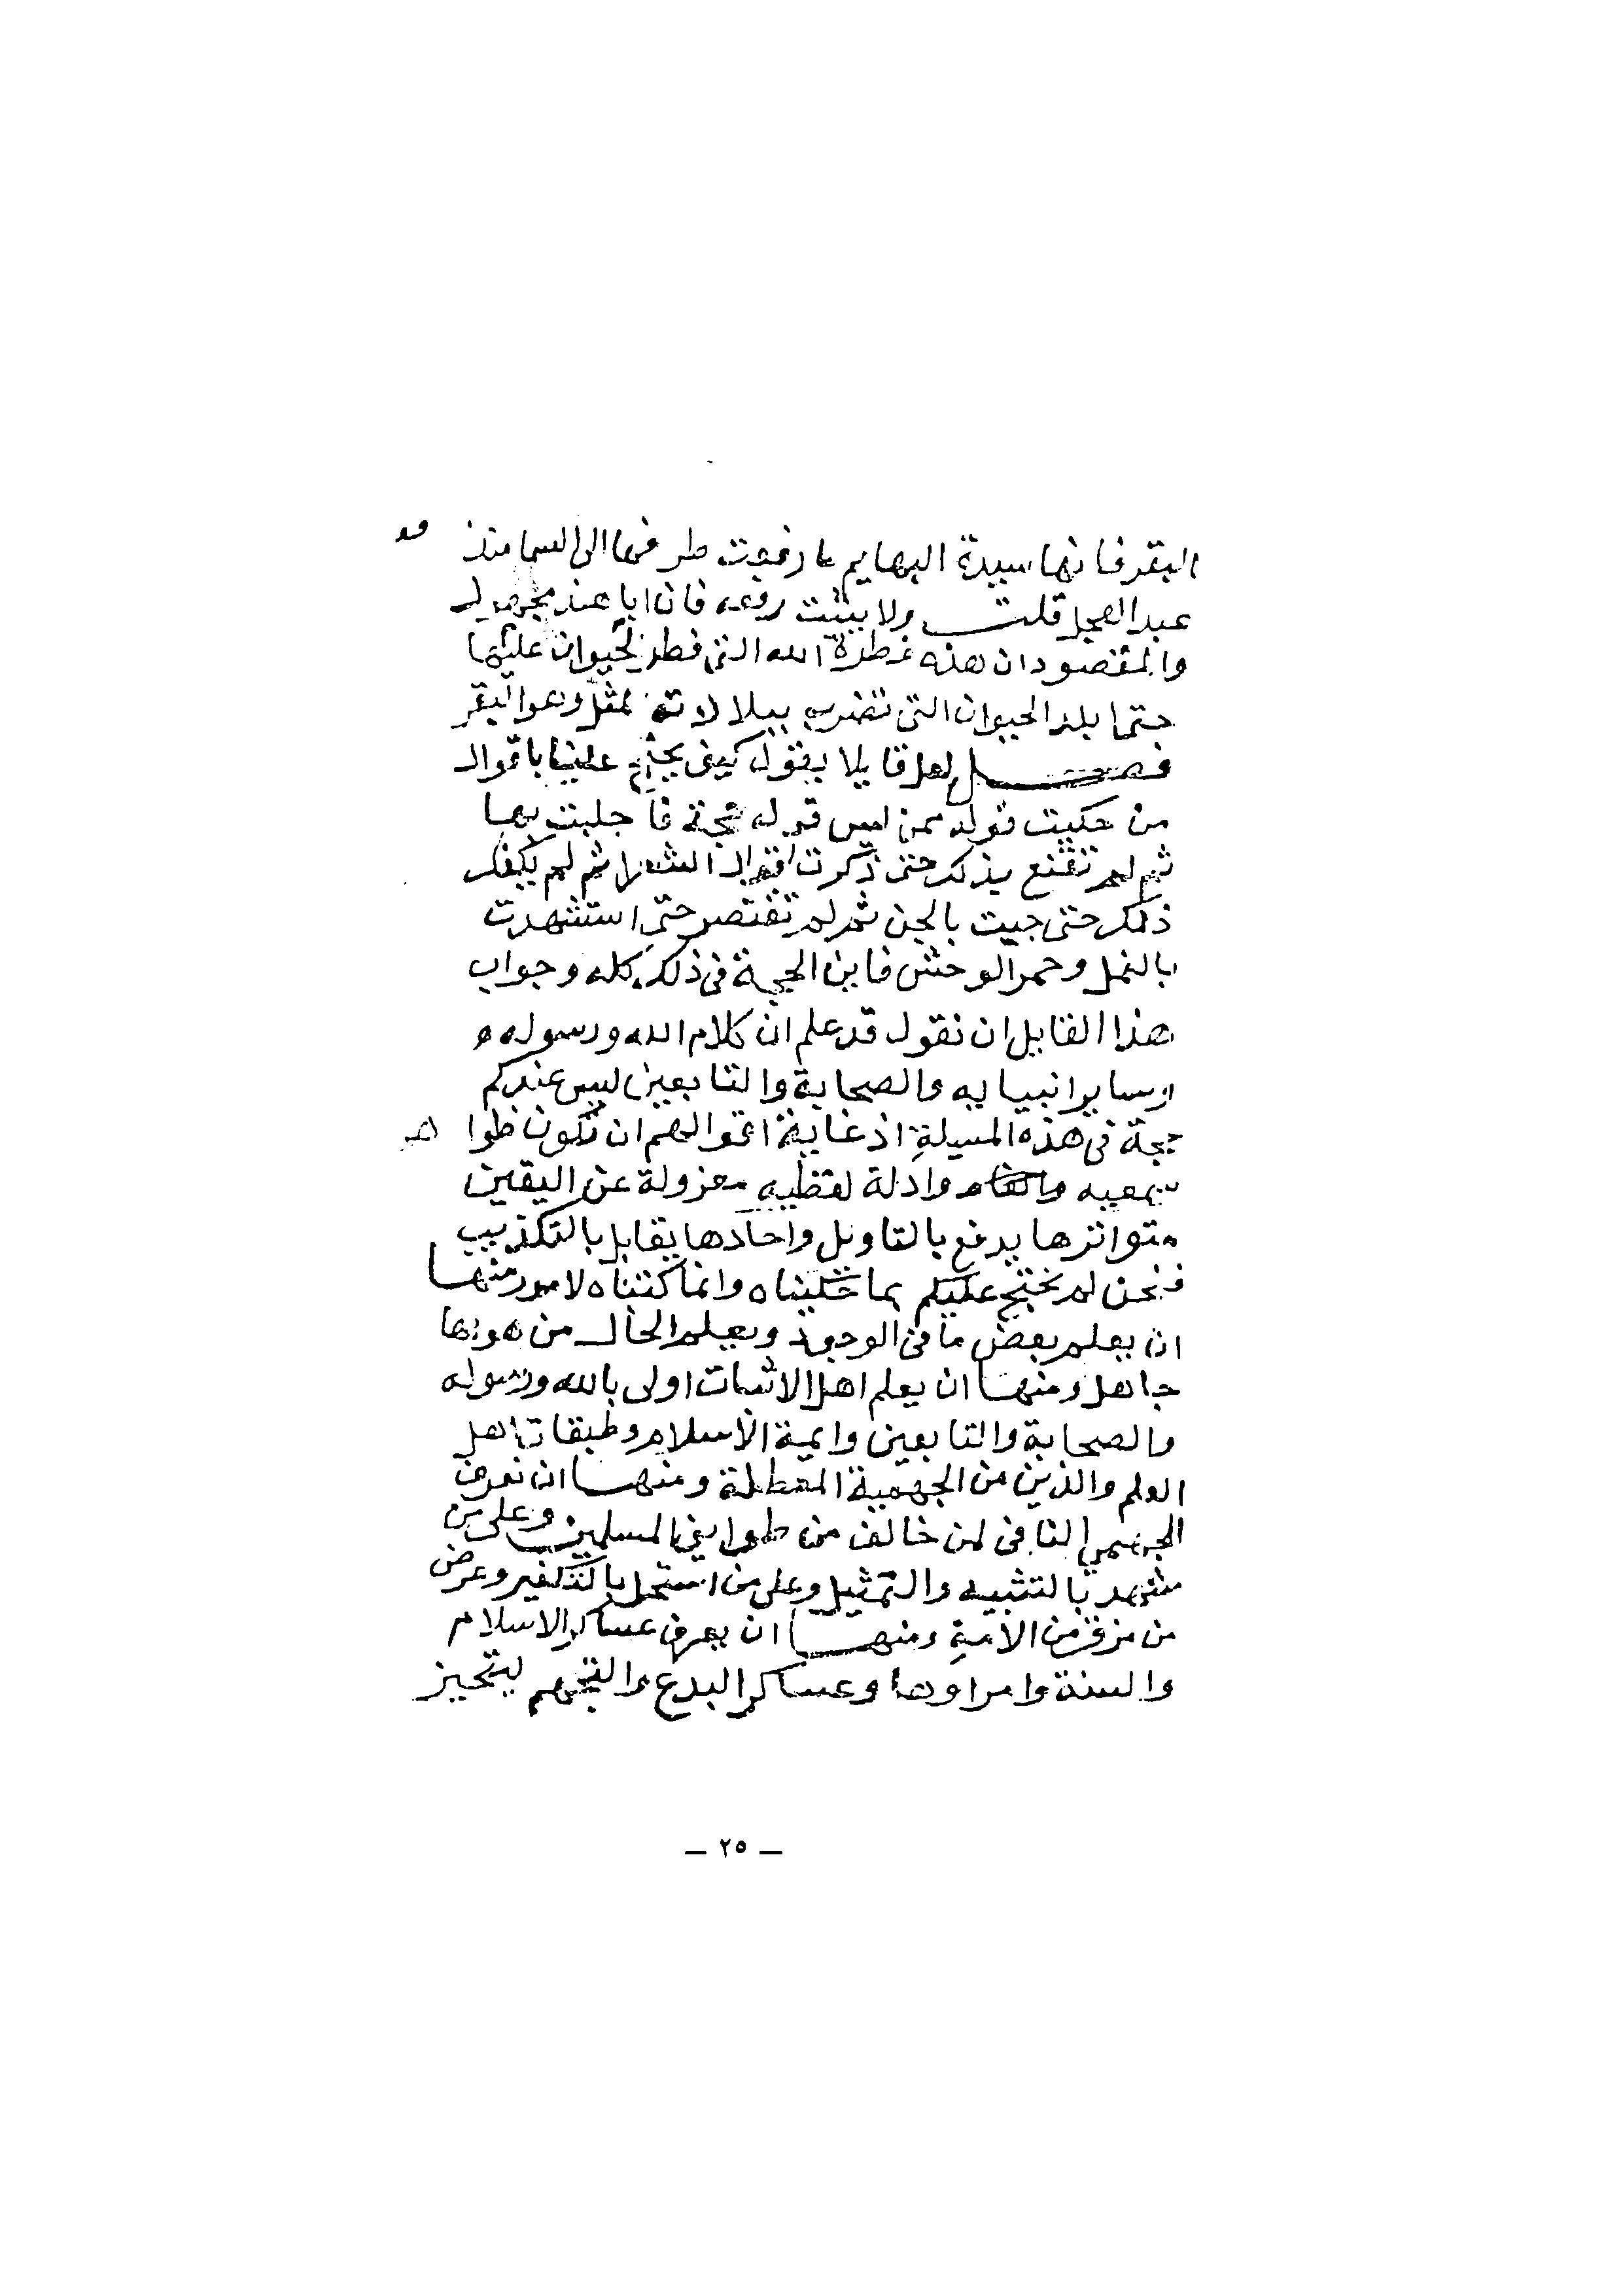 البقر فانها سيدة البهايم ما رفعت طرفها الى السما منذ
عبد العجل قلت ولا يثبت رفعه فان ابا هند مجهول
والمقصود ان هذه فطرة الله التي فطر الحيوان عليها
حتى ابلد الحيوان التي تضرب ببلادته المثل وهو البقر
فصل لعل قايلا يقول كيف يحتج علينا باقوال
من حكيت قوله ممن ليس قوله حجة فاجلبت بها
ثم لم تقنع بذلك حتى ذكرت اقوال الشعرا ثم لم يكفك
ذلك حتى جيت بالجن ثم لم تقتصر حتى استشهدت
بالنمل وحمر الوحش فاين الحجة في ذلك كله وجواب
هذا القايل ان نقول قد علم ان كلام الله ورسوله
وساير انبيايه والصحابة والتابعين ليس عندكم
حجة في هذه المسيلة اذ غاية اقوالهم ان تكون ظوا هر
سمعيه وادلة لفظيه معزولة عن اليقين
متواترها يدفع بالتاويل واحادها يقابل بالتكذيب
فنحن لم نحتج عليكم بما حكيناه وانما كتبناه لامور منها
ان يعلم بعض ما في الوجود ويعلم الحال من هو بها
جاهل ومنها ان يعلم اهل الاثبات اولى بالله ورسوله
والصحابة والتابعين وايمة الاسلام وطبقات اهل
العلم والدين من الجهمية المعطلة ومنها ان نعرف
الجهمي النافي لمن خالف من طوايف المسلمين وعلى من
شهد بالتشبيه والتمثيل وعلى من استحل بالتكفير وعرض
من مزق من الامة ومنها ان يعرف عساكر الاسلام
والسنة وامراوها وعساكر البدع والتجهم ليتحيز
– ٢٥ –